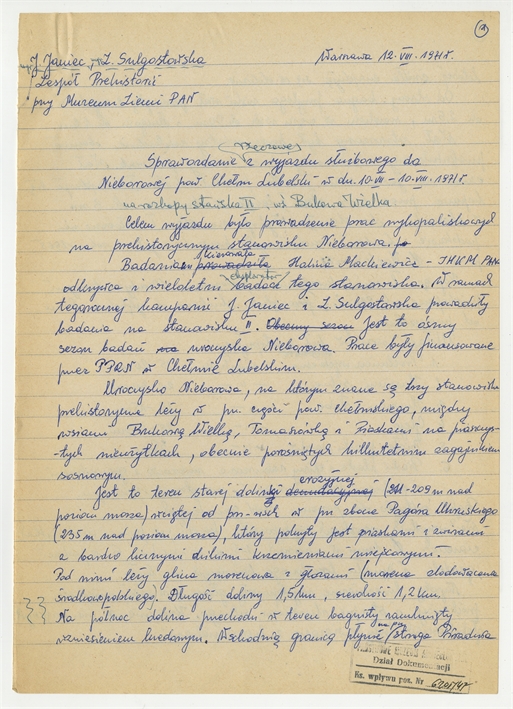 2
J. Janiec, Z. Sulgostowska
Zespół Prehistorii
przy Muzeum Ziemi PAN
Warszawa 12.VIII.1971r.
Sprawozdanie z wyjazdu służbowego do
Nieborowej pow. Chełm Lubelski w dn. 10.VII – 10.VIII.1971r.
na rozkopy stanowiska II, wś Bukowa Wielka
Celem wyjazdu było prowadzenie prac wykopaliskowych
na prehistorycznym stanowisku Nieborowa.
Badaniami prowadziła kierowała Halina Mackiewicz – IHKM PAN
odkrywca i wieloletni badacz tego stanowiska. W ramach
tegorocznej kampanii J. Janiec i Z. Sulgostowska prowadziły
badania na stanowisku II. Obecny sezon Jest to ósmy
sezon badań uroczyska Nieborowa. Prace były finansowane
przez PPRN w Chełmie Lubelskim.
Uroczysko Nieborowa, na którym znane są trzy stanowiska
prehistoryczne leży w pn części pow. chełmskiego, między
wsiami Bukową Wielką, Tomaszówką i Piaskami na piaszczys-
-tych nieużytkach, obecnie porośniętych kilkuletnim zagajnikiem
sosnowym.
Jest to teren starej doliny erozyjnej denudacyjnej (211-209 m nad
poziom morza) wciętej od pn-wsch w pn zbocze Pagóra Uhruskiego
(235 m nad poziom morza), który pokryty jest piaskami i żwirami
z bardzo licznymi dużymi krzemieniami miejscowymi.
Pod nimi leży glina morenowa z głazami (morena zlodowacenia
środkowopolskiego). Długość doliny 1,5 km, szerokość 1,2 km.
Na północ dolina przechodzi w teren bagnisty zamknięty
wzniesieniem kredowym. Wschodnią granicą płynie struga
Dział Dokumentacji
Ks. wpływu poz. Nr